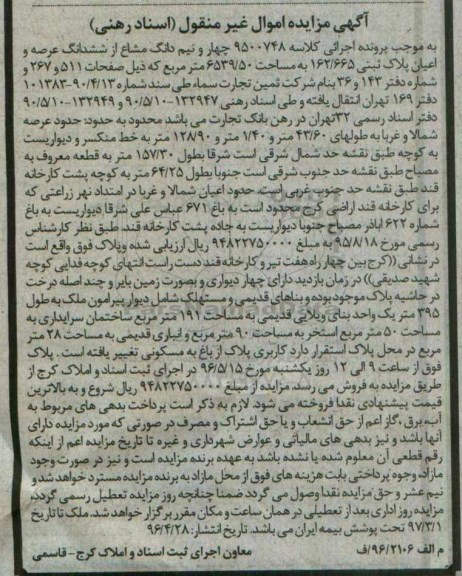 آگهی مزایده اموال غیر منقول (اسناد رهنی)
به موجب پرونده اجرائی کلاسه ۹۵۰۰۷۴۸ چهار و نیم دانگ مشاع از ششدانگ عرصه و
اعیان پلاک ثبتی ۱۶۲/۶۶۵ به مساحت ۶۵۳۹/۵۰ متر مربع که ذیل صفحات ۵۱۱ و ۲۶۷ و
شماره دفتر ۱۴۳ و ۳۶ بنام شرکت ثمین تجارت سماء طی سند شماره ۹۰/۴/۱۳-۱۰۱۳۸۳
دفتر ۱۶۹ تهران انتقال یافته و طی اسناد رهنی ۱۳۲۹۴۷-۹۰/۵/۱۰ و ۱۳۲۹۴۹-۹۰/۵/۱۰
دفتر اسناد رسمی ۳۲تهران در رهن بانک تجارت می باشد محدود به حدود: حدود عرصه
شمالا و غربا به طولهای ۴۳/۶۰ متر و ۱/۴۰ متر و ۱۲۸/۹۰ متر به خط منکسر و دیواریست
به کوچه طبق نقشه حد شمال شرقی است شرقا بطول ۱۵۷/۳۰ متر به قطعه معروف به
مصباح طبق نقشه حد جنوب شرقی است جنوبا بطول ۶۴/۲۵ متر به کوچه پشت کارخانه
قند طبق نقشه حد جنوب غربی است. حدود اعیان شمالا و غربا در امتداد نهر زراعتی که
برای کارخانه قند اراضی کرج محدود است به باغ ۶۷۱ عباس علی شرقا دیواریست به باغ
شماره ۶۲۲ اباذر مصباح جنوبا دیواریست به جاده پشت کارخانه قند، طبق نظر کارشناس
رسمی مورخ ۹۵/۸/۱۸ به مبلغ ۹۴۸۲۲۷۵۰۰۰۰ ریال ارزیابی شده و پلاک فوق واقع است
در نشانی ((کرج بین چهار راه هفت تیر و کارخانه قند دست راست انتهای کوچه فدایی کوچه
شهید صدیقی)) در زمان بازدید دارای چهار دیواری و بصورت زمین بایر و چند اصله درخت
در حاشیه پلاک موجود بوده و بناهای قدیمی و مستهلک شامل دیوار پیرامون ملک به طول
۳۹۵ متر یک واحد بنای ویلایی قدیمی به مساحت ۱۹۱ متر مربع ساختمان سرایداری به
مساحت ۵۰ متر مربع استخر به مساحت ۹۰ متر مربع و انباری قدیمی به مساحت ۳۸ متر
مربع در محل پلاک استقرار دارد کاربری پلاک از باغ به مسکونی تغییر یافته است. پلاک
فوق از ساعت ۹ الی ۱۲ روز یکشنبه مورخ ۹۶/۵/۱۵ در اجرای ثبت اسناد و املاک کرج از
طریق مزایده به فروش می رسد. مزایده از مبلغ ۹۴۸۲۲۷۵۰۰۰۰ ریال شروع و به بالاترین
قیمت پیشنهادی نقدا فروخته می شود. لازم به ذکر است پرداخت بدهی های مربوط به
آب، برق، گاز اعم از حق انشعاب و یا حق اشتراک و مصرف در صورتی که مورد مزایده دارای
آنها باشد و نیز بدهی های مالیاتی و عوارض شهرداری و غیره تا تاریخ مزایده اعم از اینکه
رقم قطعی آن معلوم شده یا نشده باشد به عهده برنده مزایده است و نیز در صورت وجود
مازاد، وجوه پرداختی بابت هزینه های فوق از محل مازاد به برنده مزایده مسترد خواهد شد و
نیم عشر و حق مزایده نقدا وصول می گردد ضمنا چنانچه روز مزایده تعطیل رسمی گردد،
مزایده روز اداری بعد از تعطیلی در همان ساعت و مکان مقرر برگزار خواهد شد. ملک تا تاریخ
۹۷/۳/۱ تحت پوشش بیمه ایران می باشد. تاریخ انتشار: ۹۶/۴/۲۸
م الف ۹۶/۲۱۰۶/ف معاون اجرای ثبت اسناد و املاک کرج- قاسمی